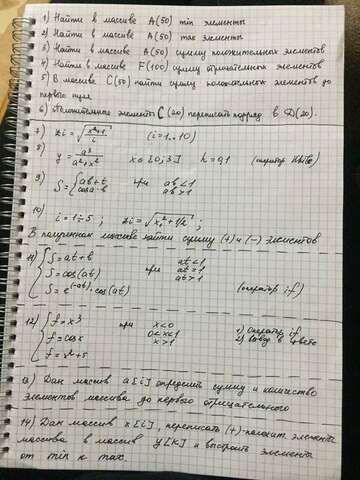 1) Найти в массиве A(50) min элементы
2) Найти в массиве A(50) max элементы
3) Найти в массиве A(50) сумму положительных элементов
4) Найти в массиве F(100) сумму отрицательных элементов
5) В массиве C(50) найти сумму положительных элементов до
первого нуля
6) Положительные элементы C(20) переписать подряд в D(20).
7) zi = √(x²+1/i) (i=1..10)
8) y = a³/(a²+x²) x∈[0,3] h=0,1 (оператор While)
9) { S = ab+t при ab<1
cosa·b ab>1
10) i=1÷5;
В полученном массиве найти сумму (+) и (-) элементов
11) { S=at+b at<1
S=cos(at) при at=1
S=e^(-at)·cos(at) at>1 (оператор if)
12) { f=x³ при x<0 1) оператор if
f=cosx 0<x<1 2) вывод в цвете
f=x²+5 x>1
13) Дан массив a[i] определить сумму и количество
элементов массива до первого отрицательного
14) Дан массив x[i], переписать (+)-полож. элементы
массива в массив y[k] и выстроить элементы
от min к max.